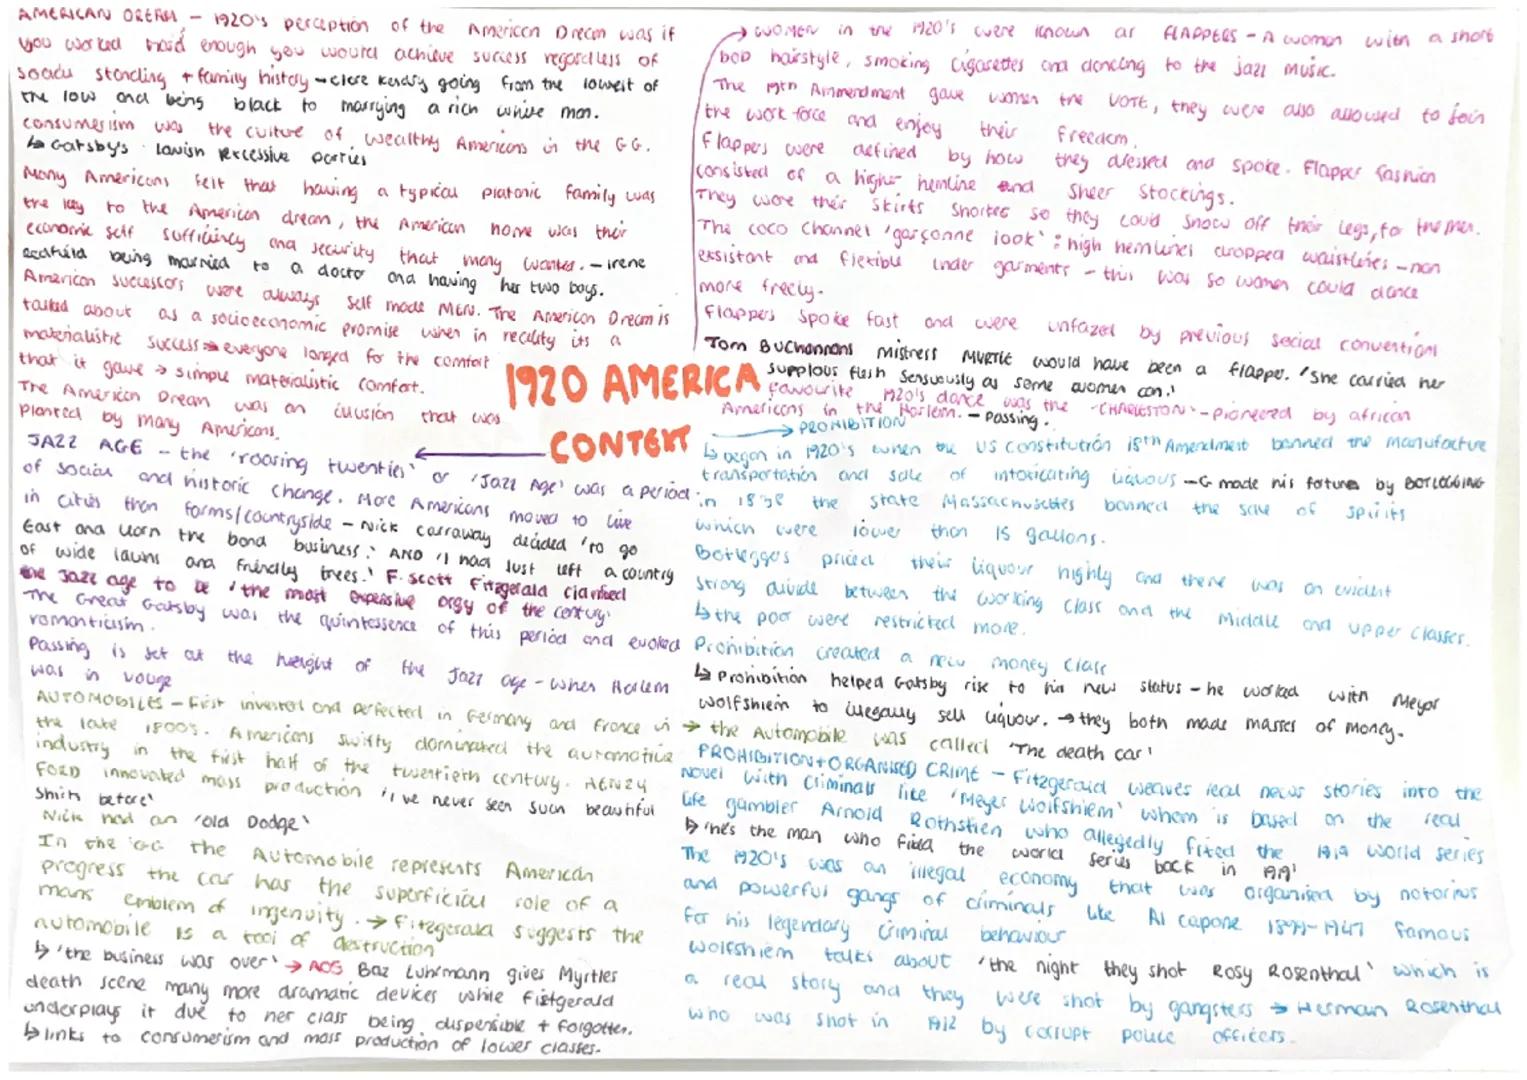 AMERICAN DREAM - 1920's perception of the American Dream was if
you worked hard enough you would achieve success regardless of
social standing + family history → clare kendry going from the lowest of
the low and being black to marrying a rich white man.
consumerism was the culture of wealthy Americans in the GG.
↳ Gatsby's lavish excessive parties
Many Americans felt that having a typical platonic family was
the key to the American dream, the American home was their
economic self sufficiency and security that many wanted. - irene
redfield being married to a doctor and having her two boys.
American successors were always self made MEN. The American Dream is
talked about as a socioeconomic promise when in reality its a
materialistic success → everyone longed for the comfort
that it gave → simple materialistic comfort.
The American Dream was an illusion that was
planted by many Americans.
1920 AMERICA
CONTEXT
JAZZ AGE - the 'roaring twenties' or 'Jazz Age' was a period
of social and historic change. More Americans moved to live
in cities then farms/countryside - Nick carraway decided 'to go
East and learn the bond business.' AND 'I had just left a country
of wide lawns and friendly trees.' F. scott Fitzgerald clarified
the Jazz age to be 'the most expensive orgy of the century.'
The Great Gatsby was the quintessence of this period and evoked
romanticism.
Passing is set at the height of the Jazz age - when Harlem
was in vouge
AUTOMOBILES - First invented and perfected in Germany and France in
the late 1800s. Americans swiftly dominated the automotive
industry in the first half of the twentieth century. HENRY
FORD innovated mass production 'I've never seen such beautiful
shirts before'
Nick had an 'old Dodge'
In the GG the Automobile represents American
progress the car has the superficial role of a
mans emblem of ingenuity. → Fitzgerald suggests the
automobile is a tool of destruction
↳ 'the business was over' → AO5 Baz Luhrmann gives Myrtles
death scene many more dramatic devices while Fistgerald
underplays it due to her class being dispensible + forgotten.
↳ links to consumerism and mass production of lower classes.
→ women in the 1920's were known as FLAPPERS - A woman with a short
bob hairstyle, smoking cigarettes and dancing to the jazz music.
The 19th Ammendment gave women the VOTE, they were also allowed to join
the work force and enjoy their freedom.
Flappers were defined by how they dressed and spoke. Flapper fashion
consisted of a higher hemline and sheer stockings.
They wore their skirts shorter so they could show off their legs, for the men.
The coco Channel 'garçonne look': high hemlines dropped waistlines - non
exsistant and flexible under garments - this was so women could dance
more freely.
Flappers spoke fast and were unfazed by previous social conventions
Tom Buchannans mistress MYRTLE would have been a flapper. 'She carried her
supplous flesh sensuously as some women can.'
Favourite 1920's dance was the 'CHARLESTON' - pioneered by african
Americans in the Harlem. - Passing.
→ PROHIBITION
↳ began in 1920's when the US constitution 18th Amendment banned the manufacture
transportation and sale of intoxicating liquous - G made his fortune by BOTLEGGING
in 1838 the state Massachuscttes banned the sale of spirits
which were lower than 15 gallons.
Botleggers priced their liquour highly and there was an evident
strong divide between the working class and the middle and upper classes.
↳ the poor were restricted more.
Prohibition created a new money class
↳ prohibition helped Gatsby rise to his new status - he worked with Meyer
wolfshiem to illegally sell liquour. → they both made masses of money.
→ the Automobile was called 'The death car'
PROHIBITION + ORGANISED CRIME - Fitzgerald weaves real news stories into the
novel with criminals like 'Meyer Wolfshiem' whom is based on the real
life gambler Arnold Rothstien who allegedly fixed the 1919 world series
↳ 'hes the man who fixed the world series back in 1919'
The 1920's was an illegal economy that was organised by notorius
and powerful gangs of criminals like Al capone 1899-1947 famous
for his legendary criminal behaviour
Wolfshiem talks about 'the night they shot Rosy Rosenthal' which is
a real story and they were shot by gangsters → Herman Rosenthal
who was shot in 1912 by corrupt police officers.